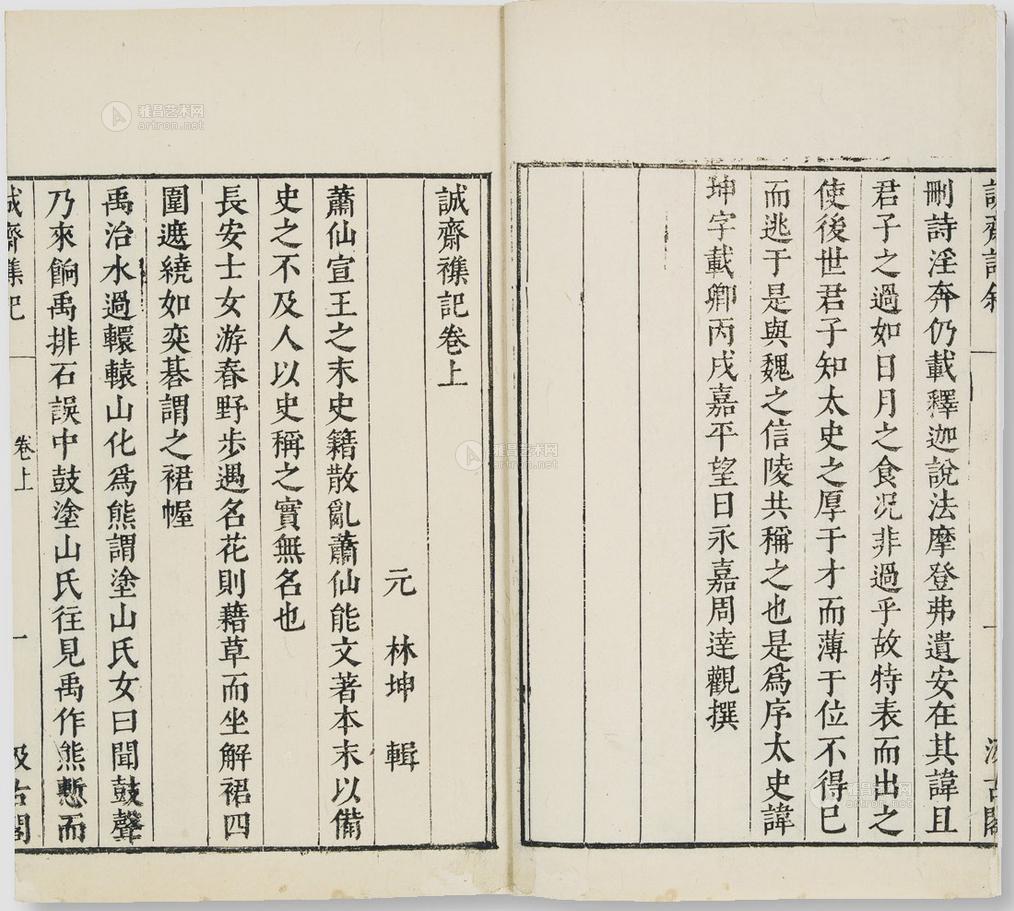 刪詩淫奔仍載釋迦說法摩登弗遺安在其諱且
君子之過如日月之食况非過乎故特表而出之
使後世君子知太史之厚于才而薄于位不得已
而逃于是與魏之信陵共稱之也是爲序太史諱
坤字載卿丙戌嘉平望日永嘉周達觀撰
誠齋襍記卷上
元 林坤 輯
蕭仙宣王之末史籍散亂蕭仙能文著本末以備
史之不及人以史稱之實無名也
長安士女游春野步遇名花則藉草而坐解裙四
圍遮繞如奕碁謂之裙幄
禹治水過轘轅山化爲熊謂塗山氏女曰聞鼓聲
乃來餉禹排石誤中鼓塗山氏往見禹作熊慙而
誠齋襍記 卷上 一 汲古閣
雅昌艺术网
artron.net
雅昌艺术网
artron.net
雅昌艺术网
artron.net